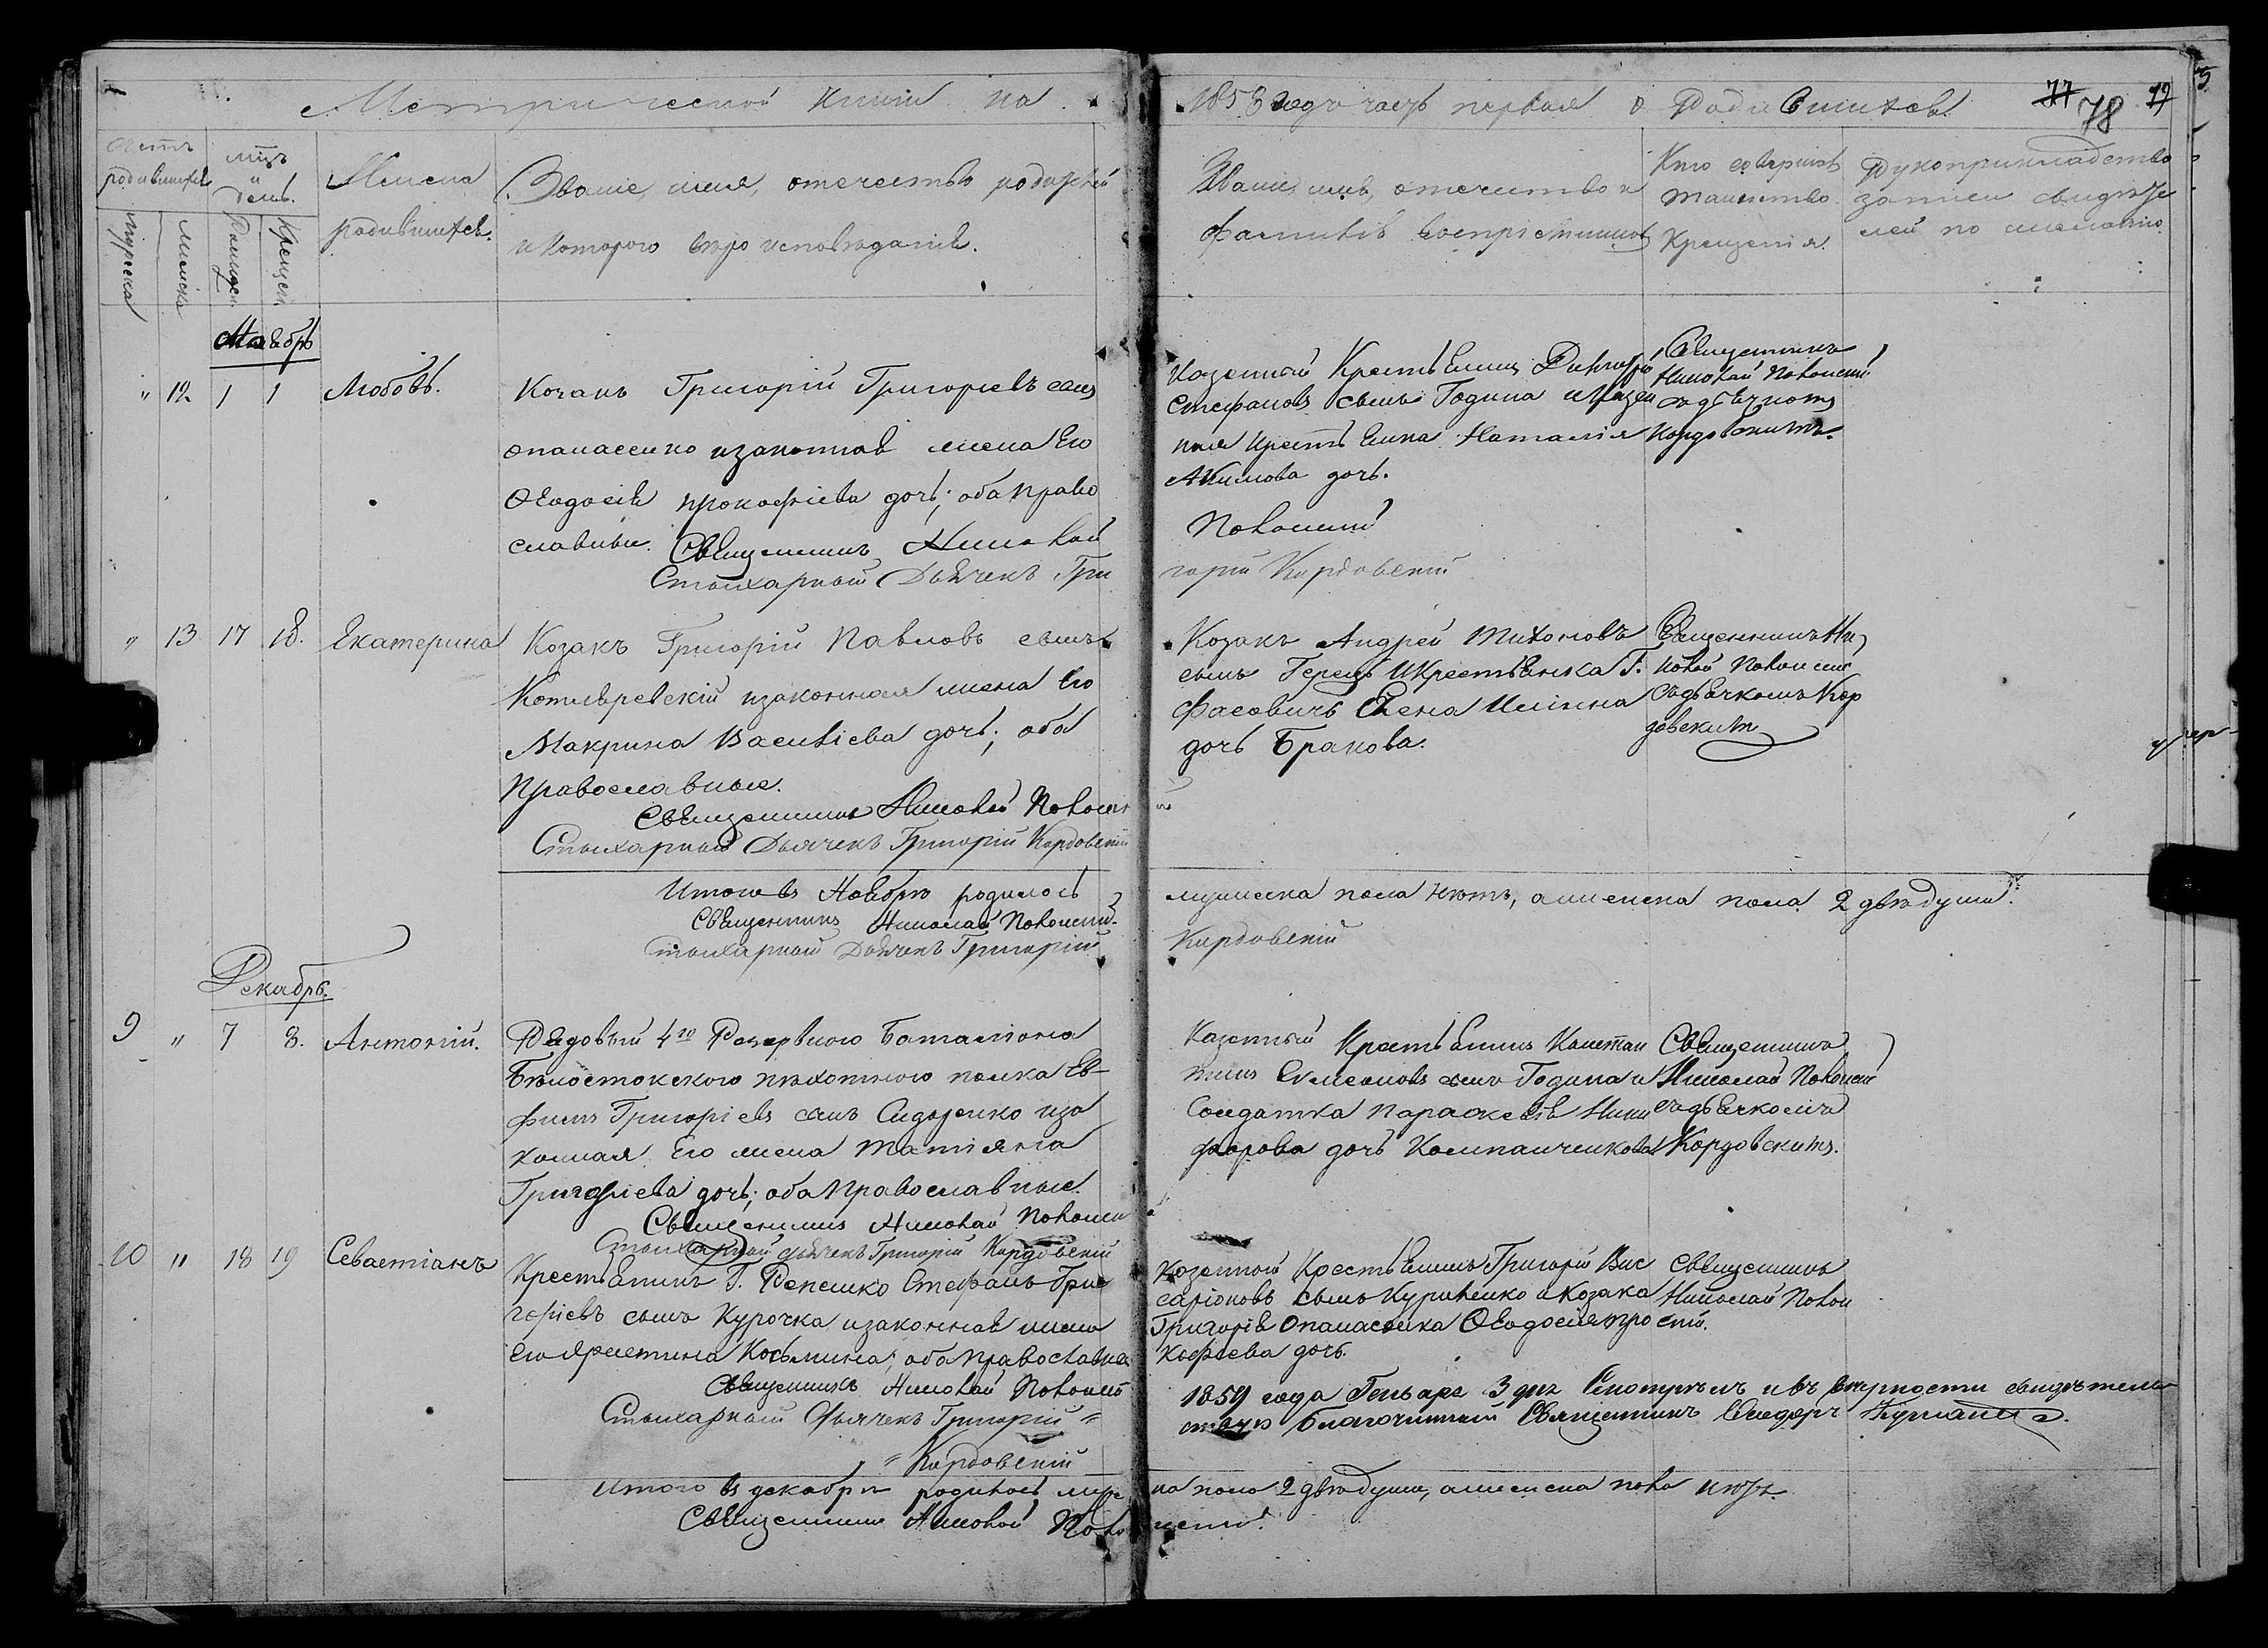 Метрической книги на 1858 годъ часть первая о Родившихся.
77 78 79
Счетъ родившихся
мужеска
женска
Мцъ и день.
Рожден.
Крещен.
Имена родившихся.
Званіе, имя, отечество родителей
и которого вѣроисповѣданія.
Званіе, имя, отечество и
фамилія воспріемниковъ
Кто совершалъ
таинство
Крещенія.
Рукоприкладство
записи свидѣте
лей по желанію.
Ноябрь
" 12 1 1 Любовь.
Козакъ Григорій Григорьевъ сынъ
Опанасенко изаконная жена Его
Ѳеодосія Прокофіева дочь; оба право
славные. Священникъ Николай
Стихарный Дьячекъ Гри
Казенный Крестьянинъ Димитрій
Стефановъ сынъ Година иказен
ная крестьянка Наталія
Акимова дочь.
горій Кордовскій
Священникъ
Николай
съдьячкомъ
Кордовскимъ.
" 13 17 18. Екатерина
Козакъ Григорій Павловъ сынъ
Котляревскій изаконная жена Его
Макрина Васильева дочь; оба
Православные.
Священникъ Николай
Стихарный Дьячекъ Григорій Кордовскій
Козакъ Андрей Тихоновъ
сынъ Герецъ икрестьянка Г.
Фасовичъ Елена Ильина
дочь Бракова.
Священникъ Ни
колай
съдьячкомъ Кор
довскимъ
Итого въ Ноябрѣ родилось мужеска пола нѣтъ, аженска пола 2 двѣ души.
Священникъ Николай
Стихарный Дьячекъ Григорій Кордовскій
Декабрь.
9 " 7 8. Антоній.
Рядовый 4го Резервного Баталіона
Бѣлостокского пѣхотного полка Ев-
фимъ Григорьевъ сынъ Сидоренко иза
конная Его жена Татіяна
Григорьева дочь; оба Православные.
Священникъ Николай
Стихарный дьячекъ Григорій Кордовскій
Казенный Крестьянинъ Констан
тинъ Симеоновъ сынъ Година и
Солдатка Параскевія Ники
форова дочь Компанченкова
Священникъ
Николай
съдьячкомъ
Кордовскимъ.
10 " 18 19 Севастіанъ
Крестьянинъ Г. Репешко Стефанъ Гри
горіевъ сынъ Курочка изаконная жена
Его Христина Косьмина; оба православные
Священникъ Николай
Стихарный Дьячекъ Григорій =
= Кордовскій
Казенный Крестьянинъ Григорій Вис
саріоновъ сынъ Куриленко и Козака
Григорія Опанасенка Ѳеодосія Про
кофіева дочь.
Священникъ
Николай
1859 года Генваря 3 дня Смотрѣлъ и въ вѣрности свидѣтель
ствую Благочинный Священникъ Ѳеодоръ
Итого въ декабрѣ родилось муже на пола 2 двѣ души, аженска пола нѣтъ.
Священникъ Николай